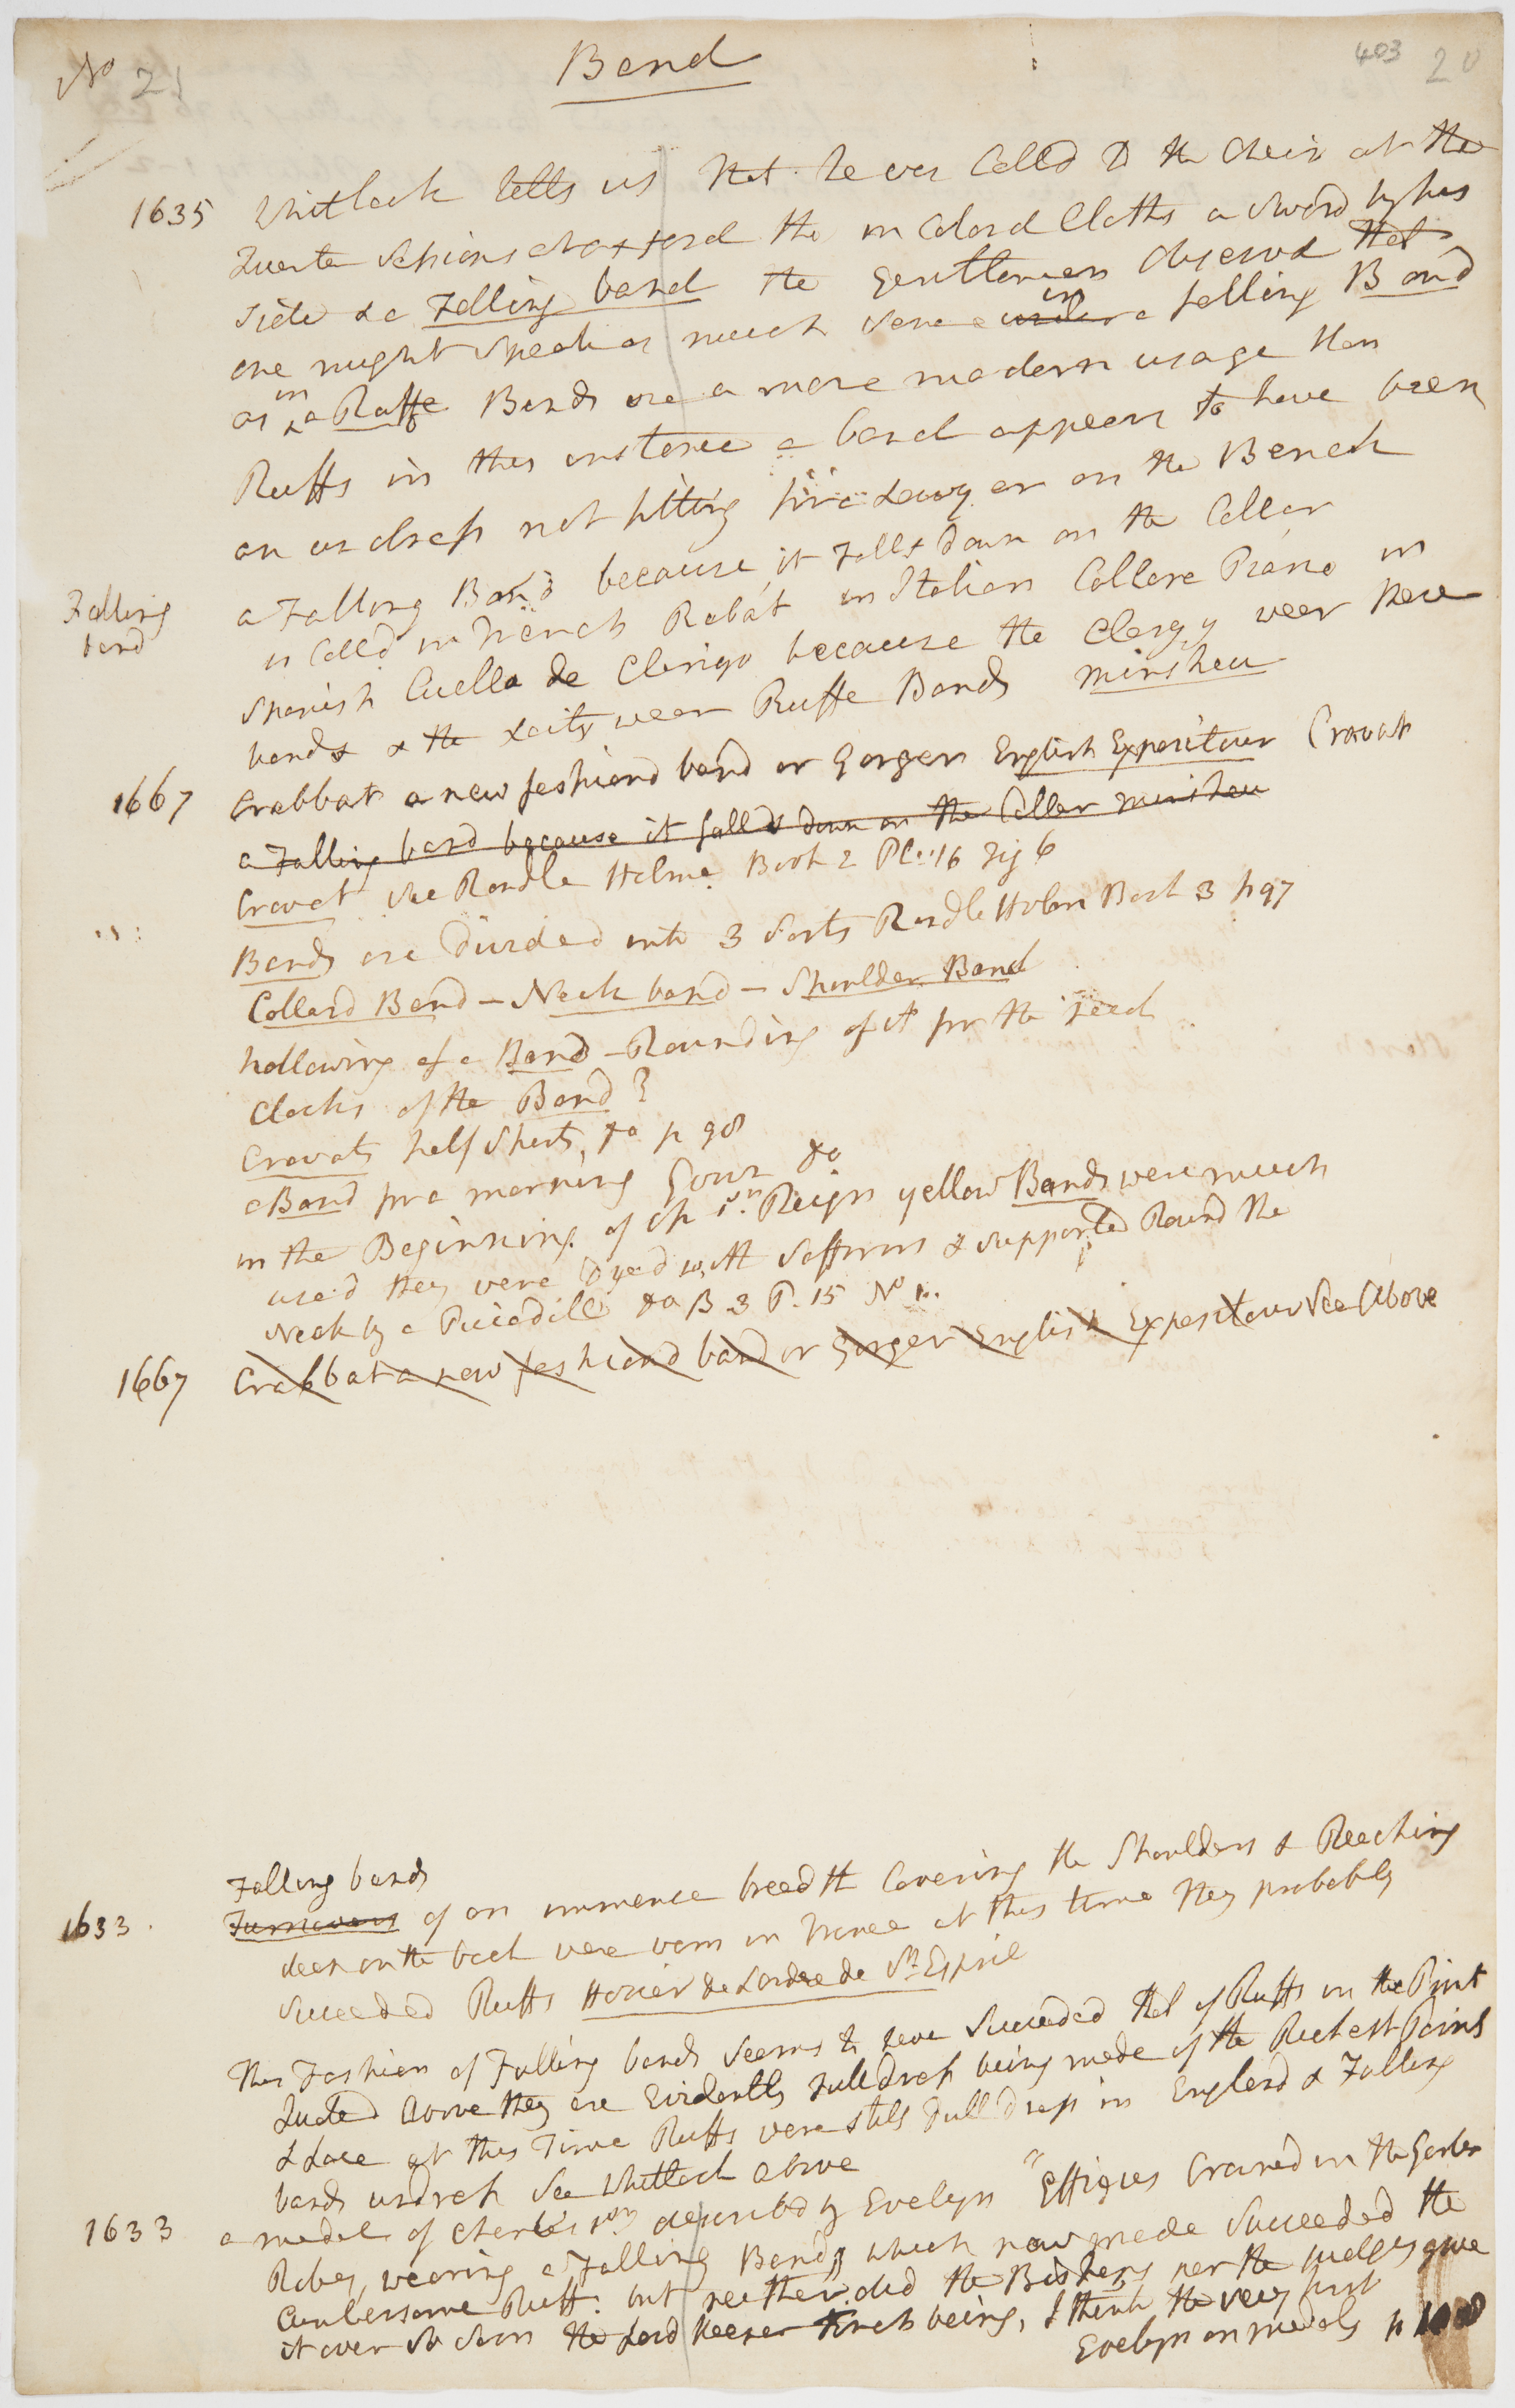 No 21
Band
403 20
1635 Whitlock tells us that he was Calld to the Chair at the
Quarter Sessions at Oxford tho in Colord Cloths a sword by his
side & a Falling band the Gentlemen observd that
one might speak as much sence in a falling Band
as in a Ruffe Bands are a more modern usage than
Ruffs in this instance a band appears to have been
an undress not fitting for a Lawyer on the Bench
Falling band
a Falling Band because it Falls down on the Collar
is Calld in French Rabat in Italian Collare Piano in
Spanish Cuello de Clerigo because the Clergy wear these
bands & the Laity wear Ruffe Bands Minsheu
1667 Crabbat a new fashiond band or Gorget English Expositour Cravat
a Falling band because it falls down on the Collar minsheu
Cravat see Randle Holme Book 2 Pl: 16 Fig 6
Bands are Divided into 3 Sorts Randle Holm Book 3 p 97
Collard Band - Neck band - Shoulder Band
hollowing of a Band - Rounding of it for the
Clocks of the Band ?
Cravats half Shirts, Do p 98
a Band for a morning Gown Do
in the Beginning of Ch 1st Reign yellow Bands were much
used they were Dyed with Saffron & supported Round the
Neck by a Piccadill Do B 3 P. 15 No 1.
1667 Crabbat a new fashiond band or Gorget English Expositour See Above
Falling bands
1633 Turnovers of an immence breadth Covering the Shoulders & Reaching
deep on the back were worn in France at this time they probably
Succeeded Ruffs Hozier de Lordre de St Esprit
This Fashion of Falling bands Seems to have Succeeded that of Ruffs in the Print
Quoted above they are Evidently Full dress being made of the Richest Point
& Lace at this Time Ruffs were still Full dress in England & Falling
bands undress See Whitlock above
1633 a medal of Charles 1st described by Evelyn "Effigies Crowned in the Garter
Robes, wearing a Falling Band, which now mode Succeeded the
Cumbersome Ruff. but neither did the Bishops nor the Judges give
it over so soon the Lord Keeper Finch being, I think the very first
Evelyn on medals p 108